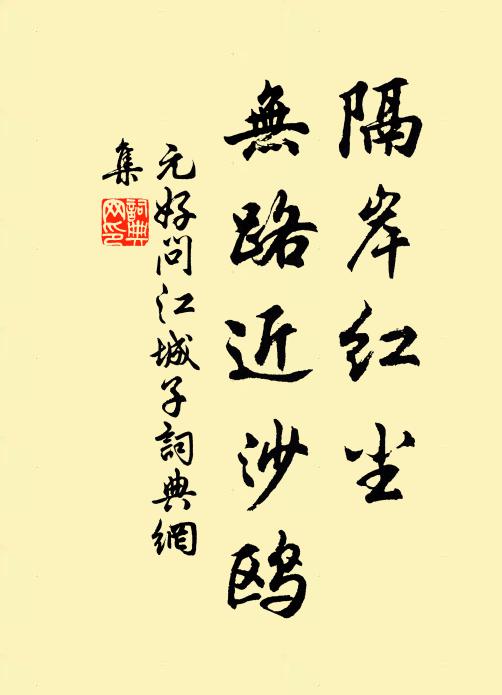 隔岸红尘
無路近沙鸥
元好问江城子詞典網
集
詞典網印